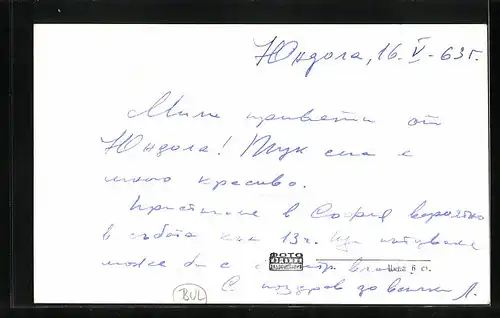 Юндола, 16. V - 63 г.
Мили привети от
Юндола! Тук сме е
много красиво.
Пристигаме в София вероятно
в събота към 13 ч.
може би с
С поздрав до всички Л.
ФОТО
Цена 6 ст.
BUL